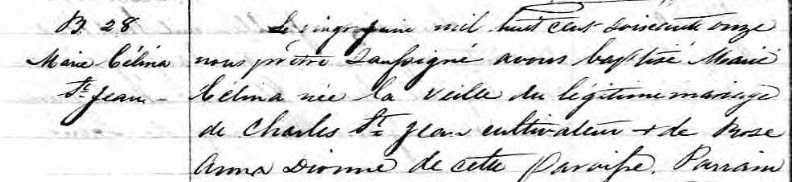 B. 28
Marie Célina
St Jean
Le vingt juin mil huit cent soixante onze
nous prêtre soussigné avons baptisé Marie
Célina née la veille du légitime mariage
de Charles St Jean cultivateur + de Rose
Anna Dionne de cette paroisse. Parrain